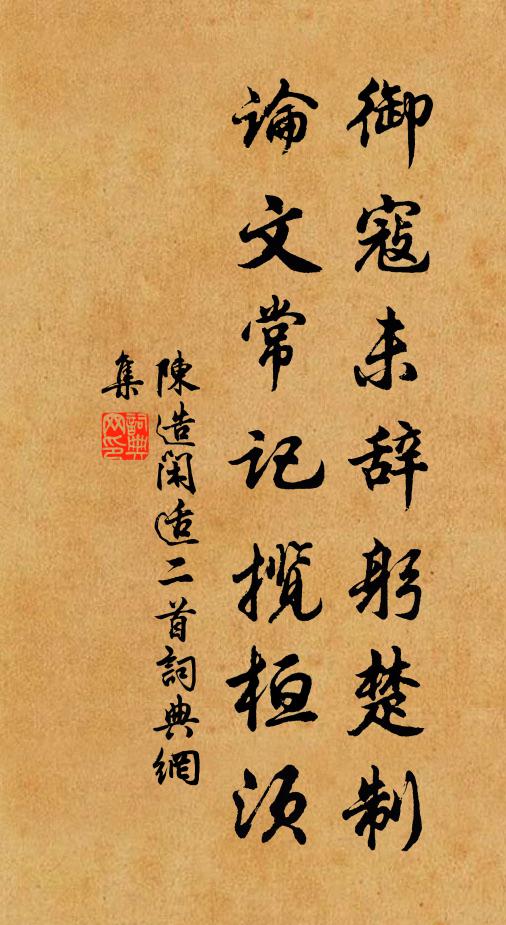 御寇未辞躬楚制
論文常记揽桓须
陳造闲适二首詞典網
集
詞典網印